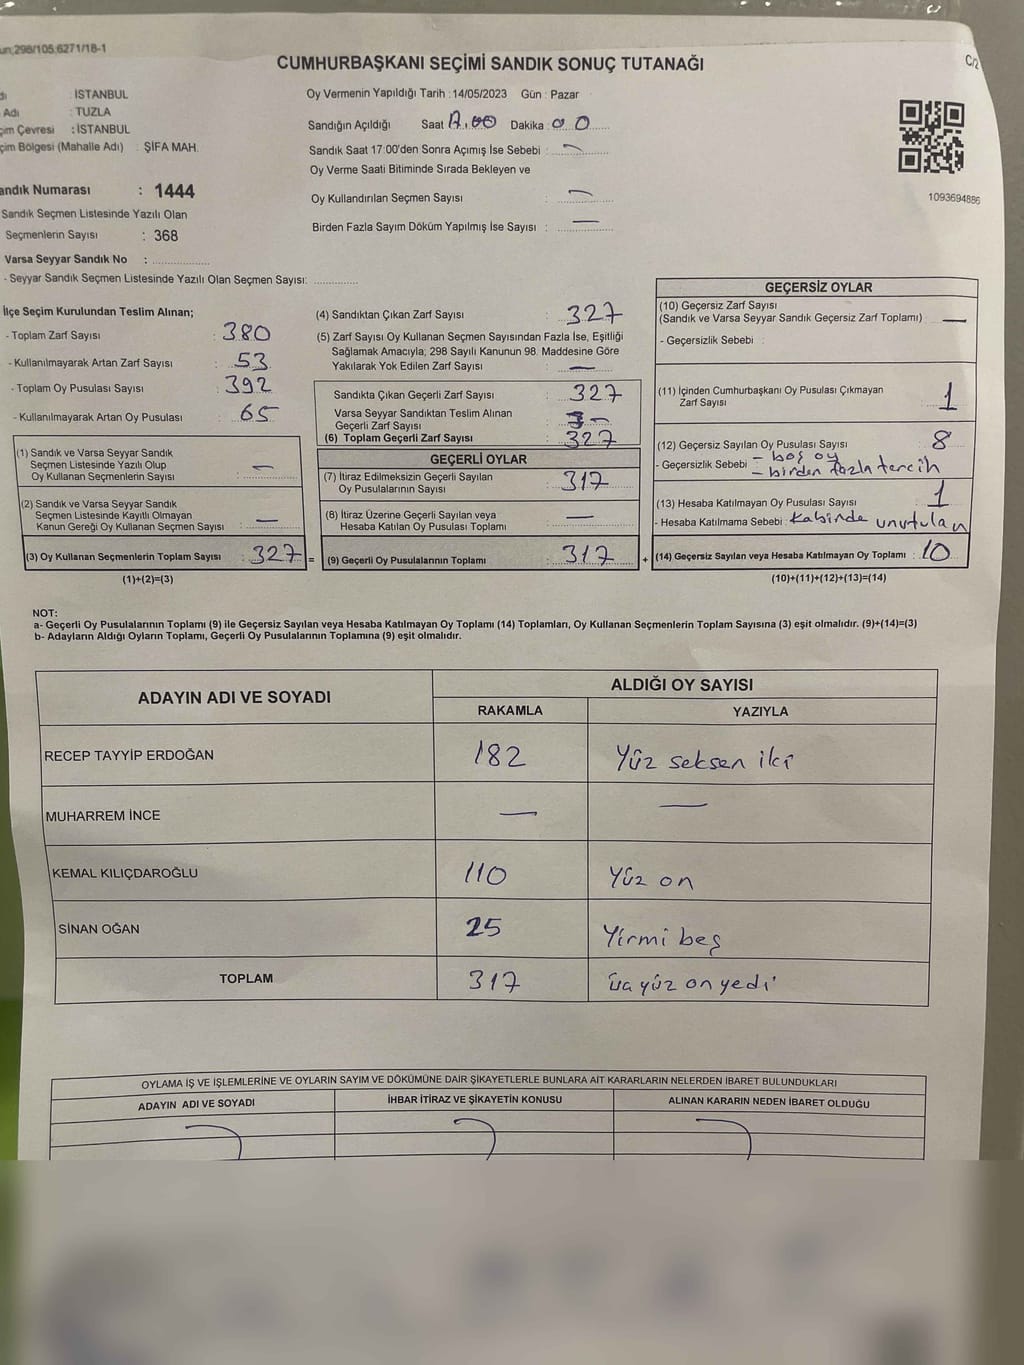 298/105;6271/18-1
C/2
CUMHURBAŞKANI SEÇİMİ SANDIK SONUÇ TUTANAĞI
: İSTANBUL
Adı : TUZLA
Çevresi : İSTANBUL
Bölgesi (Mahalle Adı) : ŞİFA MAH.
Sandık Numarası : 1444
Sandık Seçmen Listesinde Yazılı Olan
Seçmenlerin Sayısı : 368
Varsa Seyyar Sandık No :
- Seyyar Sandık Seçmen Listesinde Yazılı Olan Seçmen Sayısı:
Oy Vermenin Yapıldığı Tarih : 14/05/2023 Gün : Pazar
Sandığın Açıldığı Saat Dakika 00
Sandık Saat 17:00'den Sonra Açımış İse Sebebi : —
Oy Verme Saati Bitiminde Sırada Bekleyen ve
Oy Kullandırılan Seçmen Sayısı : —
Birden Fazla Sayım Döküm Yapılmış İse Sayısı : —
1093694886
İlçe Seçim Kurulundan Teslim Alınan;
- Toplam Zarf Sayısı : 380
- Kullanılmayarak Artan Zarf Sayısı : 53
- Toplam Oy Pusulası Sayısı : 392
- Kullanılmayarak Artan Oy Pusulası : 65
(1) Sandık ve Varsa Seyyar Sandık
Seçmen Listesinde Yazılı Olup
Oy Kullanan Seçmenlerin Sayısı : —
(2) Sandık ve Varsa Seyyar Sandık
Seçmen Listesinde Kayıtlı Olmayan
Kanun Gereği Oy Kullanan Seçmen Sayısı : —
(3) Oy Kullanan Seçmenlerin Toplam Sayısı : 327 =
(1)+(2)=(3)
(4) Sandıktan Çıkan Zarf Sayısı : 327
(5) Zarf Sayısı Oy Kullanan Seçmen Sayısından Fazla İse, Eşitliği
Sağlamak Amacıyla; 298 Sayılı Kanunun 98. Maddesine Göre
Yakılarak Yok Edilen Zarf Sayısı : —
Sandıkta Çıkan Geçerli Zarf Sayısı : 327
Varsa Seyyar Sandıktan Teslim Alınan
Geçerli Zarf Sayısı : —
(6) Toplam Geçerli Zarf Sayısı : 327
GEÇERLİ OYLAR
(7) İtiraz Edilmeksizin Geçerli Sayılan
Oy Pusulalarının Sayısı : 317
(8) İtiraz Üzerine Geçerli Sayılan veya
Hesaba Katılan Oy Pusulası Toplamı : —
(9) Geçerli Oy Pusulalarının Toplamı : 317 +
GEÇERSİZ OYLAR
(10) Geçersiz Zarf Sayısı
(Sandık ve Varsa Seyyar Sandık Geçersiz Zarf Toplamı) : —
- Geçersizlik Sebebi :
(11) İçinden Cumhurbaşkanı Oy Pusulası Çıkmayan
Zarf Sayısı : 1
(12) Geçersiz Sayılan Oy Pusulası Sayısı : 8
- Geçersizlik Sebebi : – boş oy
– birden fazla tercih
(13) Hesaba Katılmayan Oy Pusulası Sayısı : 1
- Hesaba Katılmama Sebebi : Kabinde unutulan
(14) Geçersiz Sayılan veya Hesaba Katılmayan Oy Toplamı : 10
(10)+(11)+(12)+(13)=(14)
NOT:
a- Geçerli Oy Pusulalarının Toplamı (9) ile Geçersiz Sayılan veya Hesaba Katılmayan Oy Toplamı (14) Toplamları, Oy Kullanan Seçmenlerin Toplam Sayısına (3) eşit olmalıdır. (9)+(14)=(3)
b- Adayların Aldığı Oyların Toplamı, Geçerli Oy Pusulalarının Toplamına (9) eşit olmalıdır.
ADAYIN ADI VE SOYADI ALDIĞI OY SAYISI
RAKAMLA YAZIYLA
RECEP TAYYİP ERDOĞAN 182 Yüz seksen iki
MUHARREM İNCE — —
KEMAL KILIÇDAROĞLU 110 Yüz on
SİNAN OĞAN 25 Yirmi beş
TOPLAM 317 üç yüz on yedi
OYLAMA İŞ VE İŞLEMLERİNE VE OYLARIN SAYIM VE DÖKÜMÜNE DAİR ŞİKAYETLERLE BUNLARA AİT KARARLARIN NELERDEN İBARET BULUNDUKLARI
ADAYIN ADI VE SOYADI İHBAR İTİRAZ VE ŞİKAYETİN KONUSU ALINAN KARARIN NEDEN İBARET OLDUĞU